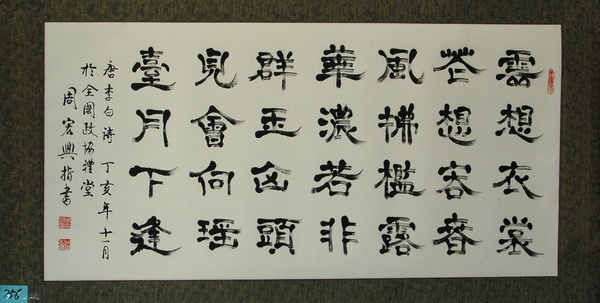 雲想衣裳
花想容春
風拂檻露
華濃若非
群玉山頭
見會向瑶
臺月下逢
唐李白诗 丁亥年十一月
於全國政協禮堂
周宏興指書
356